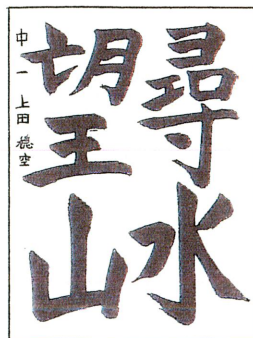 尋水
望山
中一 上田 穂空